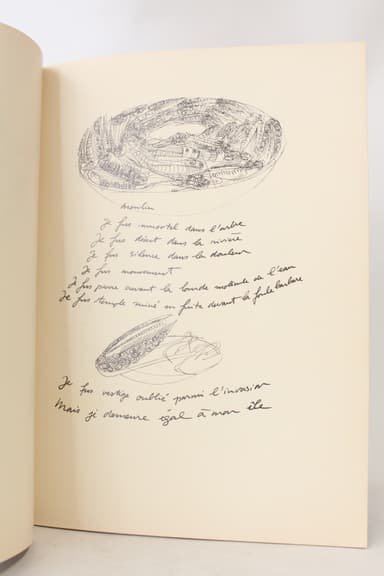 moulin
Je fus immortel dans l'arbre
Je fus désert dans la rivière
Je fus silence dans la douleur
Je fus mouvement
Je fus pierre devant la lourde de l'eau
Je fus temple miné en fuite devant la foule barbare
Je fus vertige oublié parmi l'invasion
Mais je demeure égal à mon île